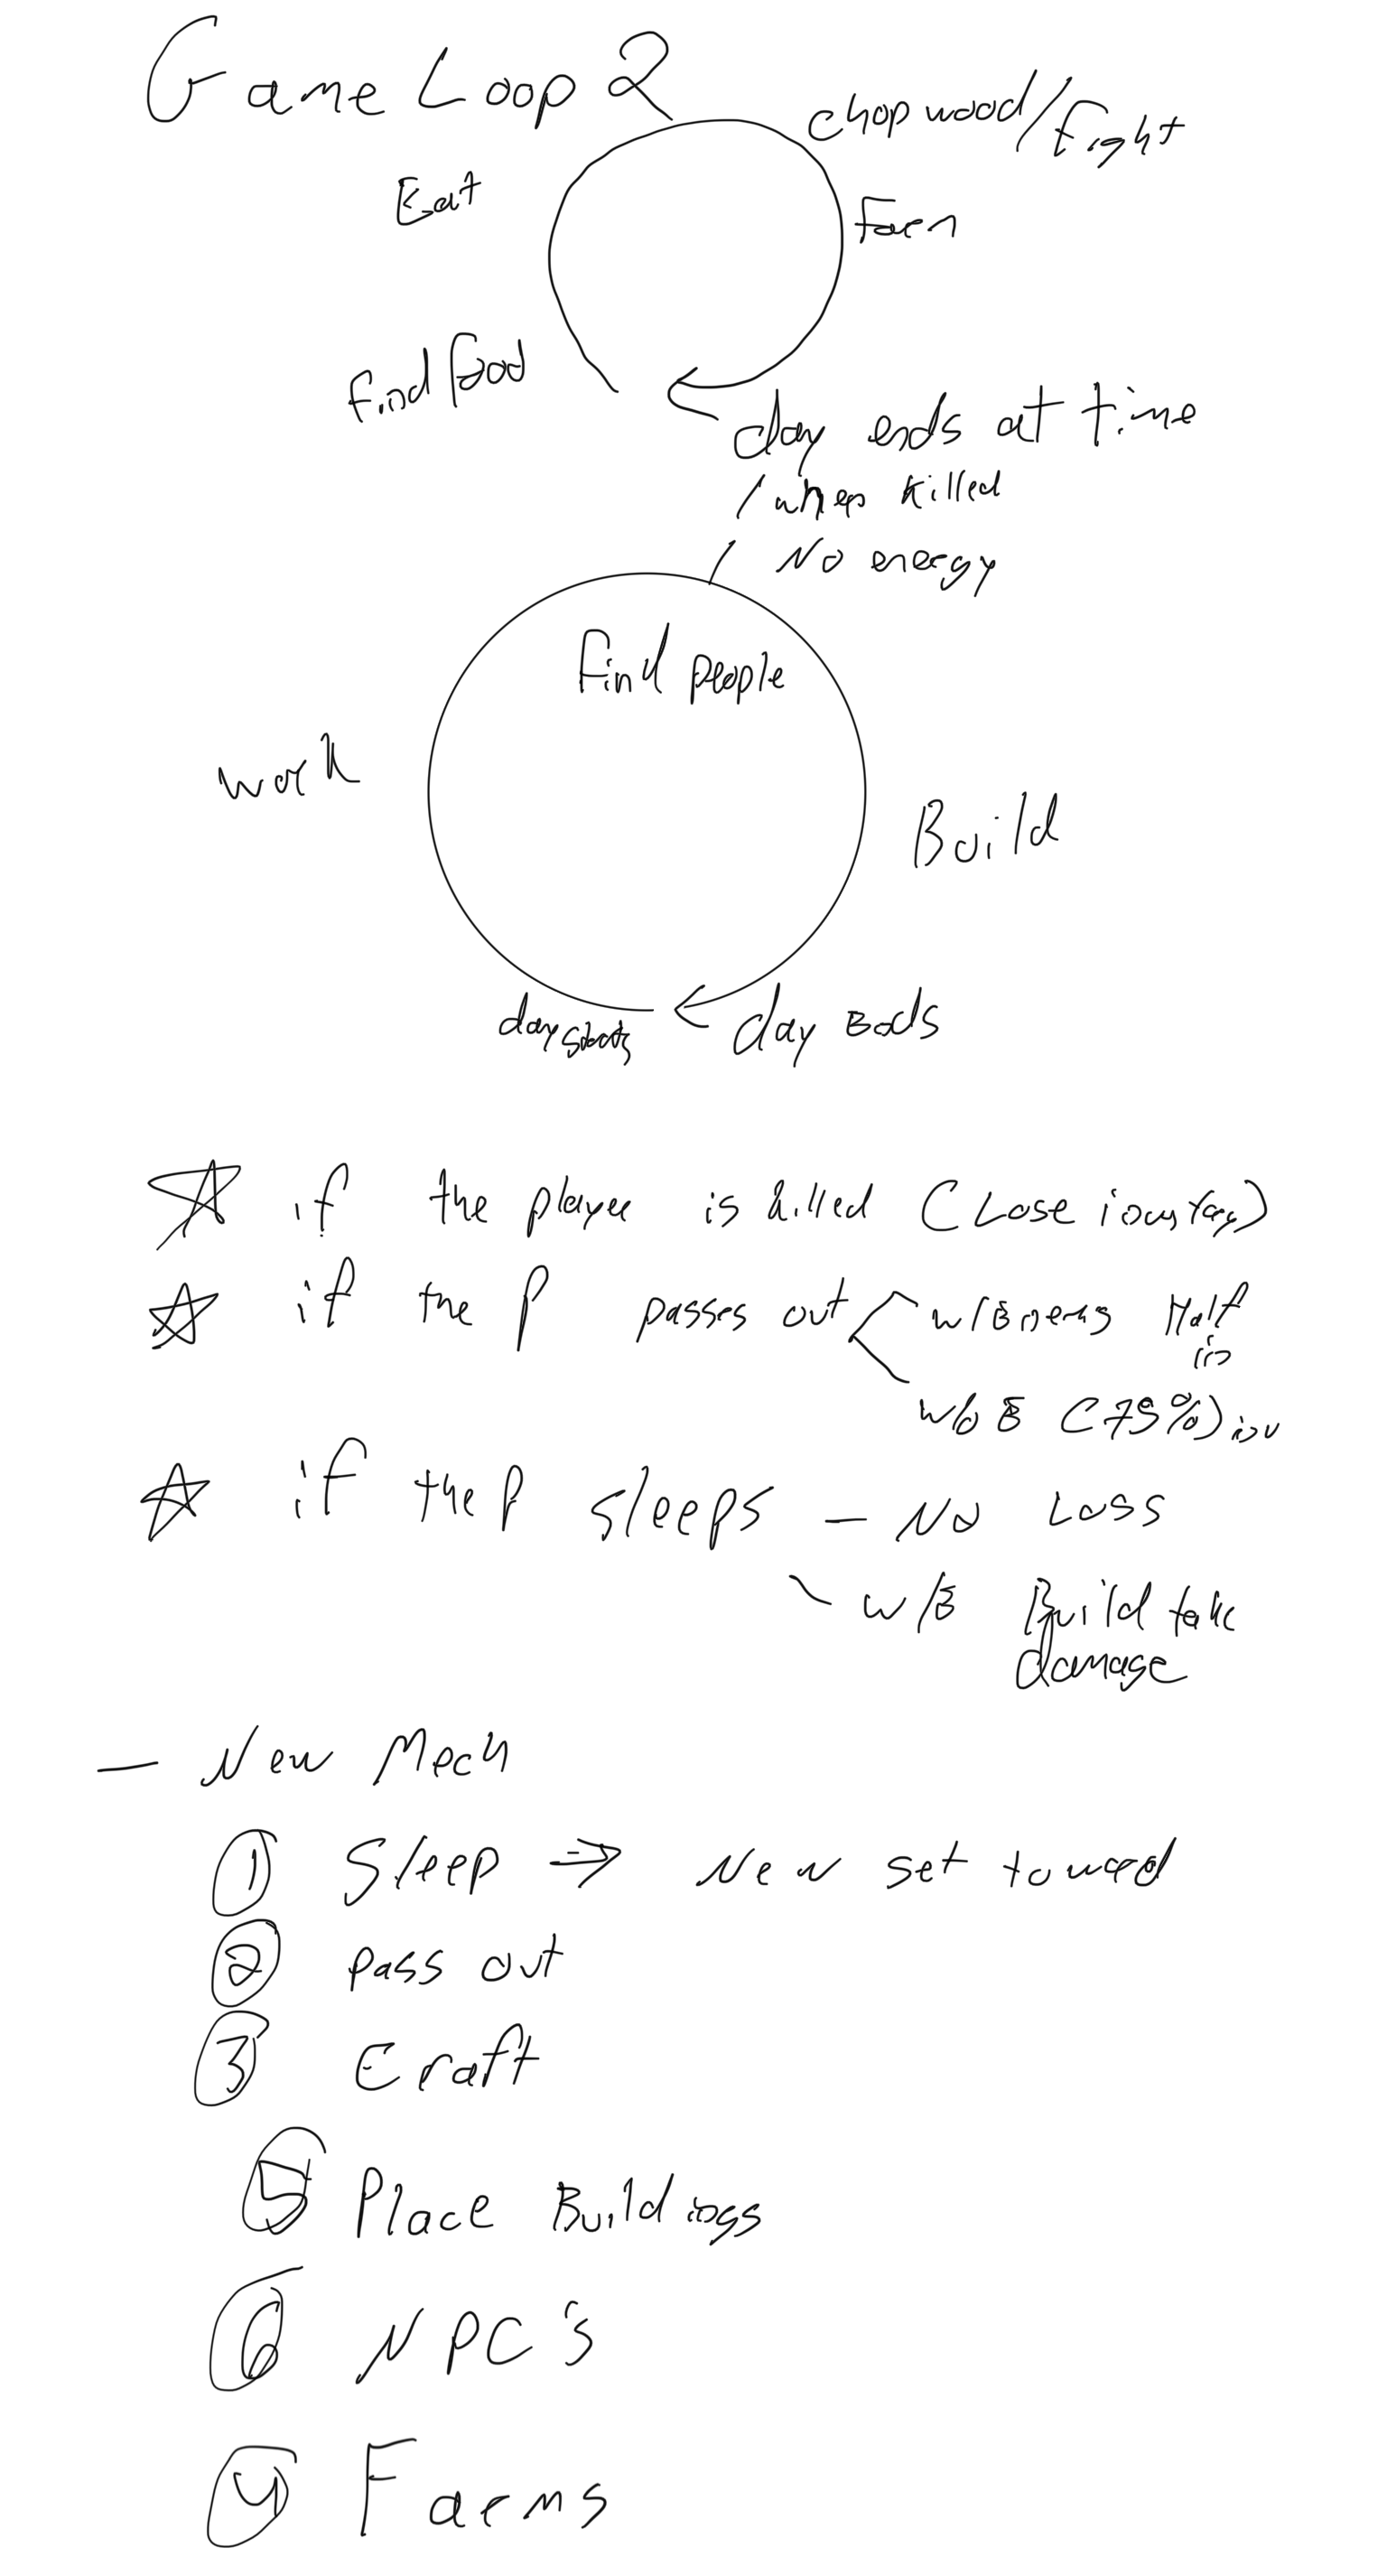 Game Loop 2
chop wood/Fight
Eat
Farm
find food
day ends at time
/when killed
/ No energy
find people
work
Build
day starts
day Ends
☆ if the player is killed (Lose
☆ if the P passes out w/Energy Half
in
w/o E (75%) inv
☆ if the P sleeps – No Loss
w/E Build take
damage
– New Mech
① Sleep ⇒ New set
② pass out
③ Craft
⑤ Place Buildings
⑥ NPC's
④ Farms